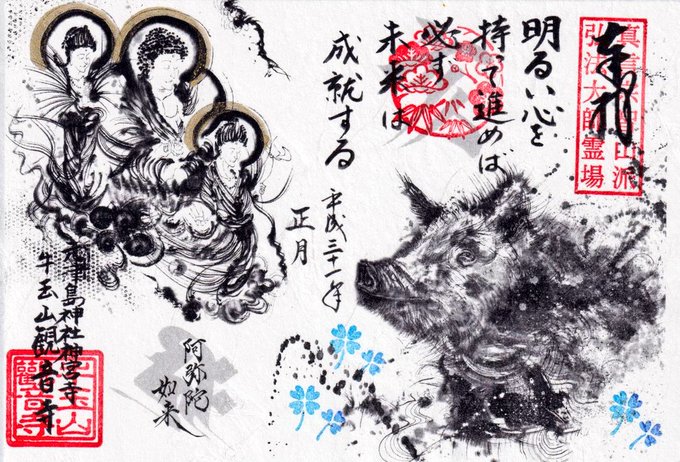 奉拝
弘法大師霊場
明るい心を
持って進めば
必ず
未来は
成就する
平成三十一年
正月
阿弥陀
如来
津島神社神宮寺
牛玉山観音寺
牛玉山
觀音寺